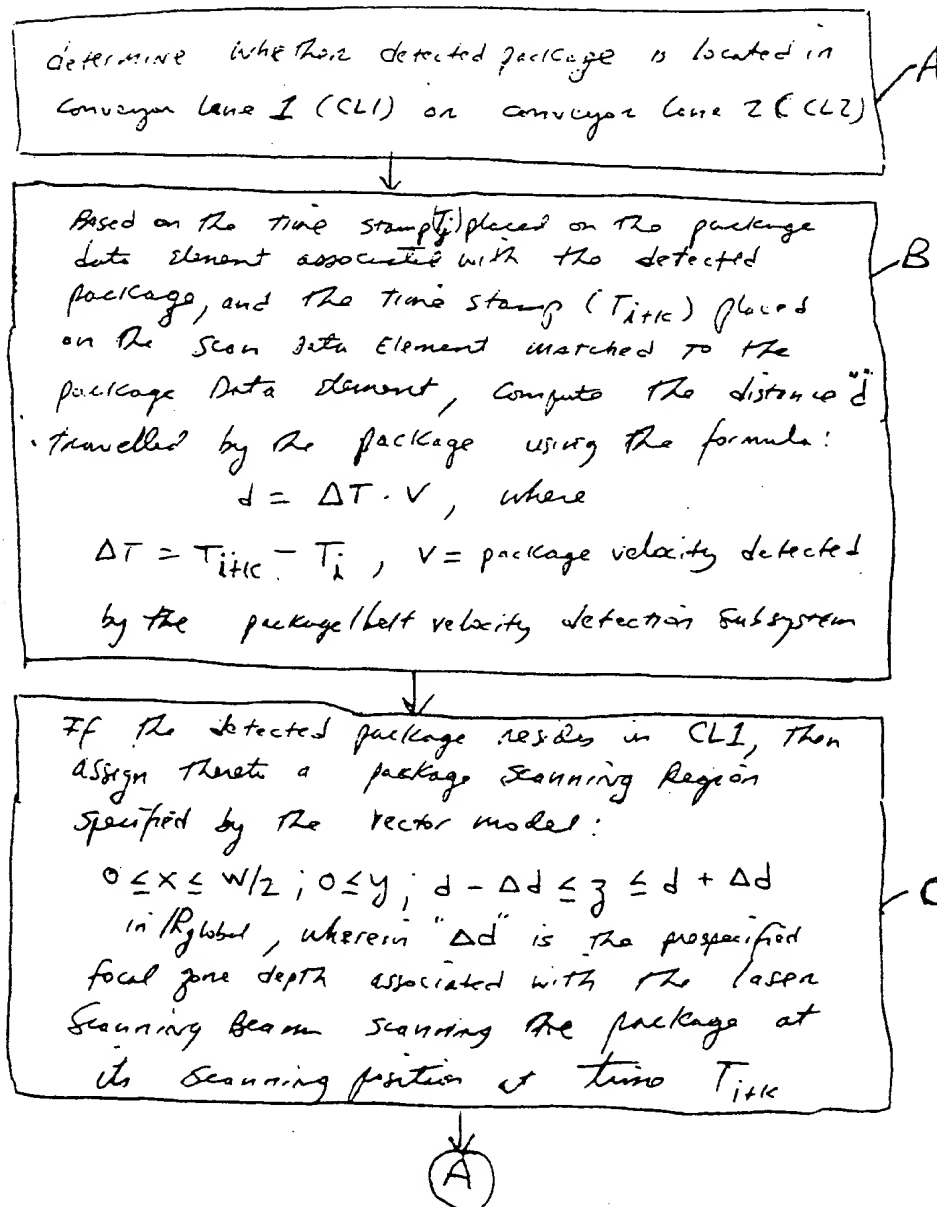 determine whether detected package is located in
conveyor lane 1 (CL1) or conveyor lane 2 (CL2)
A
Based on the time stamp (Tj) placed on the package
data element associated with the detected
package, and the time stamp (Ti+k) placed
on the Scan Data Element matched to the
package Data Element, compute the distance "d"
travelled by the package using the formula:
d = ΔT · V, where
ΔT = Ti+k - Ti, V = package velocity detected
by the package/belt velocity detection subsystem
B
If the detected package resides in CL1, then
assign thereto a package Scanning Region
specified by the vector model:
0 ≤ x ≤ W/2 ; 0 ≤ y ; d - Δd ≤ z ≤ d + Δd
in Rglobal, wherein "Δd" is the prespecified
focal zone depth associated with the laser
Scanning Beam scanning the package at
its scanning position at time Ti+k
C
A